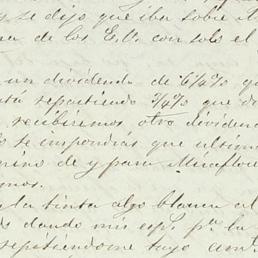 se dijo que iba sobre
de los E.U. con solo el
un dividendo de 6¼% qu
está repartiendo ¾% que
recibiremos otro dividend
se impondrás que ultim
de y para Miraflor
mos.
la tinta algo blanca al
dando mis esp. pr. la
repitiéndome tuyo amº.